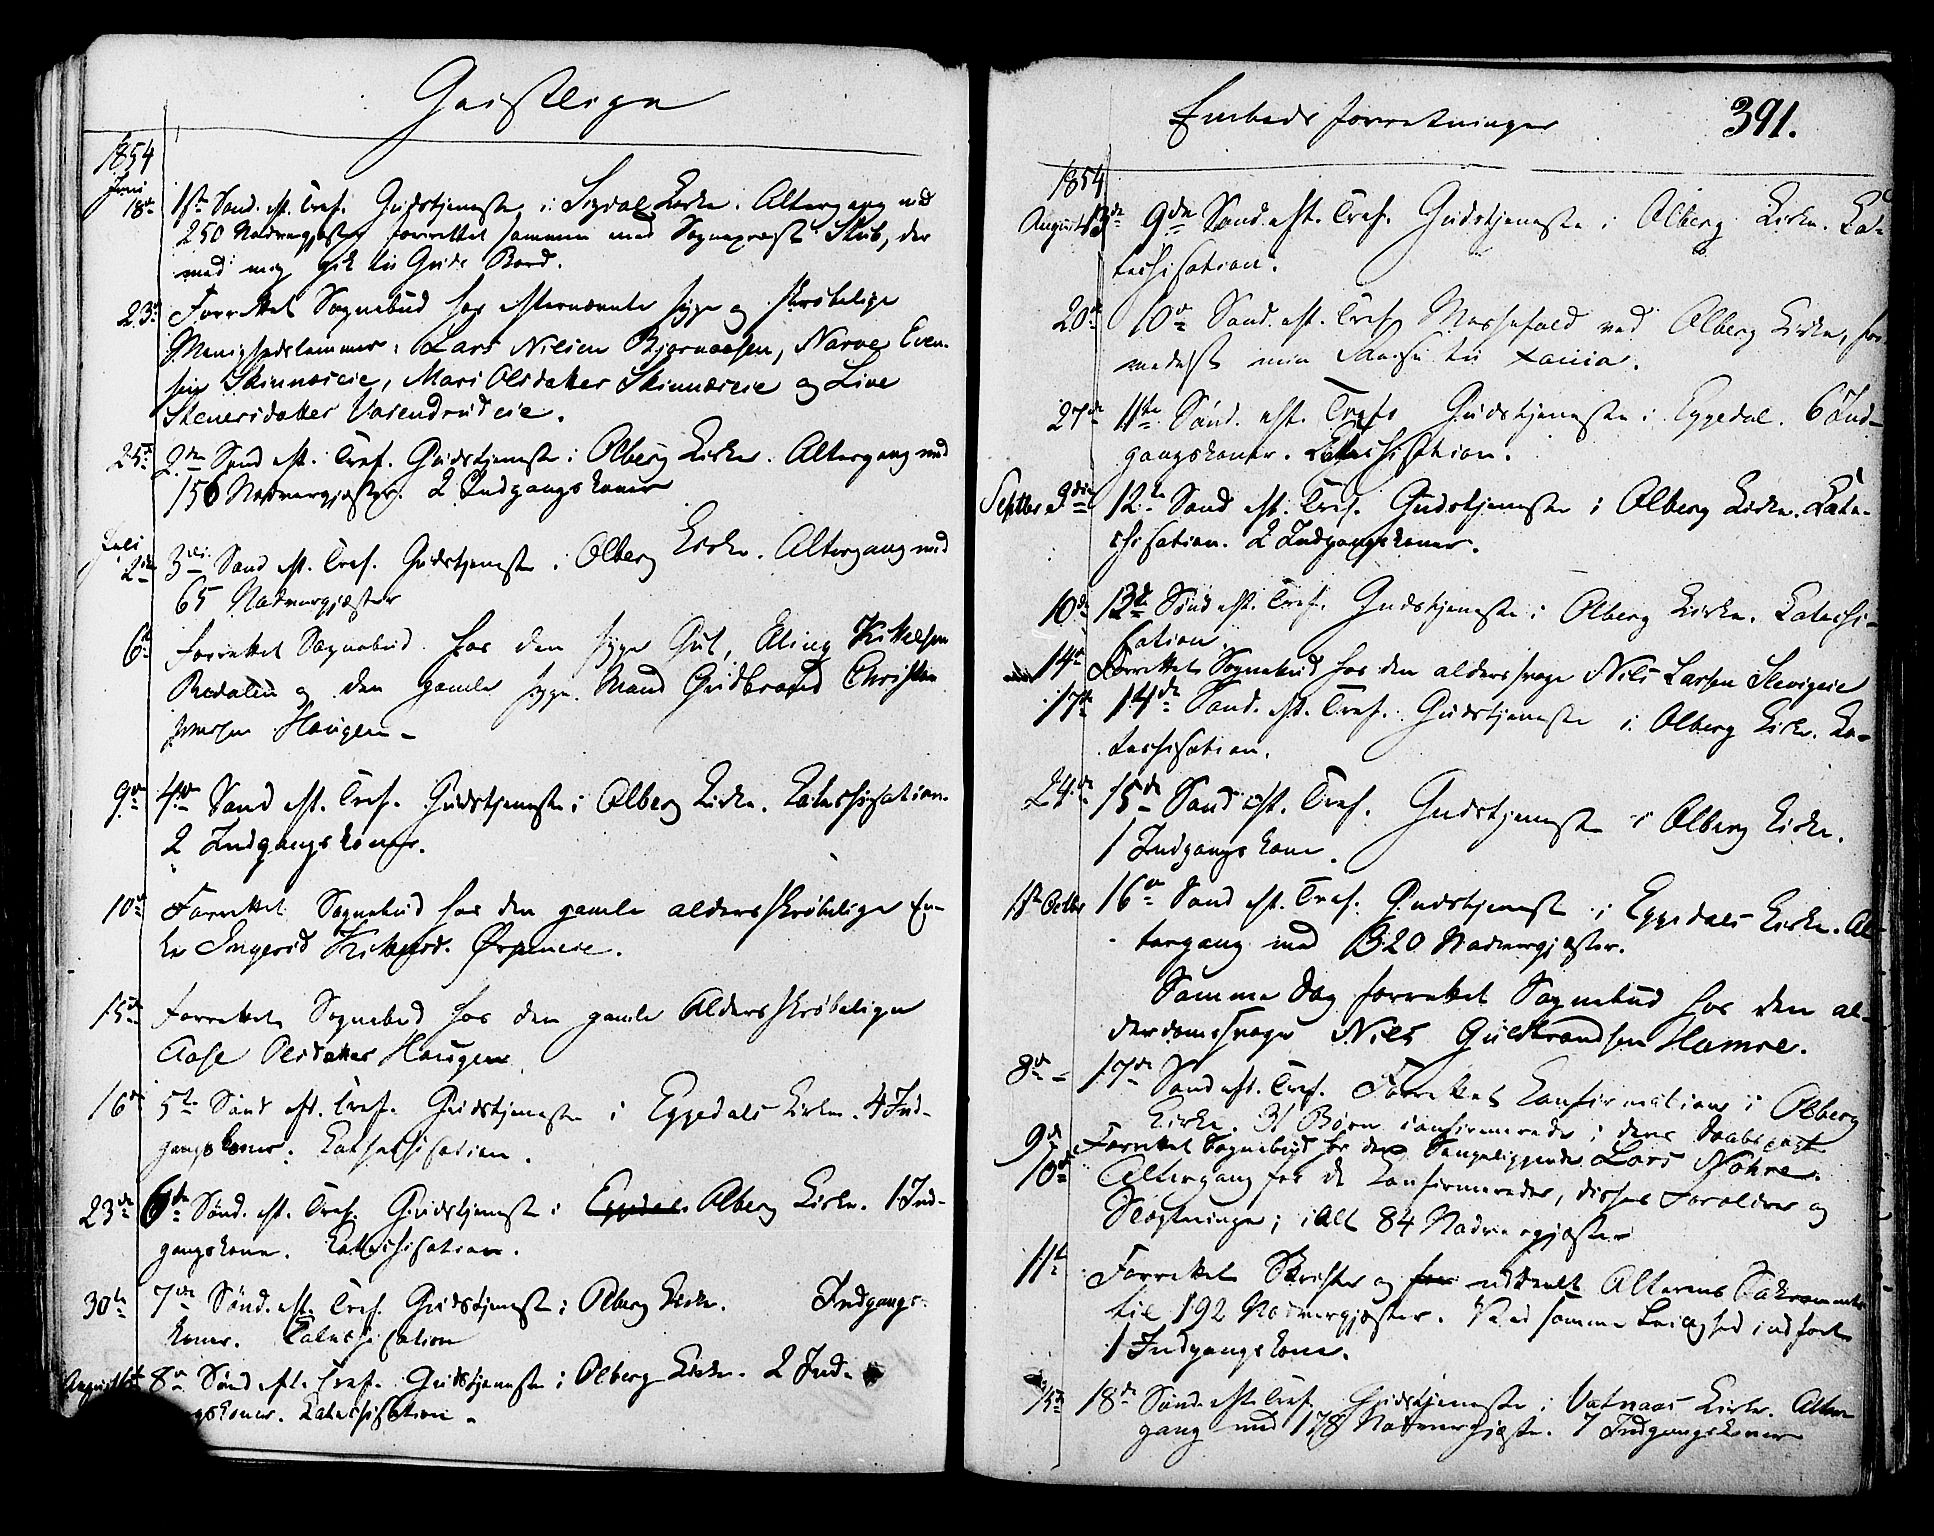 Geistlige
1854
Juni
18de 1ste Sønd. eft. Tref. Gudstjeneste i Sigdal Kirke. Altergang med
250 Nadvergjæster forrettet sammen med Sognepræst Skub, der
med mig gik til Guds Bord.
23de Forrettet Sognebud hos efternævnte syge og skrøbelige
Menighedslemmer: Lars Nilsen Bjørnaasen, Narve Even-
sen Skinnæseie, Mari Olsdatter Skinnæseie og Live
Stenersdatter Vasendrudeie.
25de 2den Sønd eft. Tref. Gudstjeneste i Olberg Kirke. Altergang med
156 Nadvergjæster. 2 Indgangskoner
Juli
2den 3die Sønd eft. Tref. Gudstjeneste i Olberg Kirke. Altergang med
65 Nadvergjæster
6te Forrettet Sognebud hos den syge Gut, Eling Kittelsen
Redalen og den gamle syge Mand Guldbrand Christen
Haugen
9de 4de Sønd eft. Tref. Gudstjeneste i Olberg Kirke. Katechisation.
2 Indgangskoner.
10de Forrettet Sognebud hos den gamle aldersskrøbelige En-
ke Ingerid Kittelsd. Ørpeneie.
15de Forrettet Sognebud hos den gamle Aldersskrøbelige
Aase Olsdatter Haugen
16de 5te Sønd eft. Tref. Gudstjeneste i Eggedals Kirke. 4 Ind-
gangskoner. Kathechisation.
23de 6te Sønd. eft. Tref. Gudstjeneste i Eggedal Olberg Kirke. 1 Ind-
gangskone. Katechisation.
30te 7de Sønd. eft. Tref. Gudstjeneste i Olberg Kirke. Indgangs-
koner. Katechisation
August 8de Sønd eft. Tref. Gudstjeneste i Olberg Kirke. 2 Ind-
gskoner. Katechisation.
Embedsforretninger 391.
1854
August 13de 9de Sønd. eft. Tref. Gudstjeneste i Olberg Kirke. Ka-
techisation.
20de 10de Sønd. eft. Tref. Messefald ved Olberg Kirke, for-
medelst min Reise til Xania.
27de 11te Sønd. eft. Tref. Gudstjeneste i Eggedal. 6 Ind-
gangskoner. Katechisation.
Septbr 12te Sønd eft. Tref. Gudstjeneste i Olberg Kirke. Kate-
chisation. 2 Indgangskoner.
10de 13de Sønd eft. Tref. Gudstjeneste i Olberg Kirke. Katechi-
sation.
14de Forrettet Sognebud hos den alderssvage Nils Larsen Slevigeie
17de 14de Sønd. eft. Tref. Gudstjeneste i Olberg Kirke. Ka-
techisation.
24de 15de Sønd eft. Tref. Gudstjeneste i Olberg Kirke.
1 Indgangskone.
1ste Octbr 16de Sønd eft. Tref. Gudstjeneste i Eggedals Kirke. Al-
tergang med 320 Nadvergjæster.
Samme Dag forrettet Sognebud hos den al-
derdomssvage Nils Guldbrandsen Hamre.
8de 17de Sønd eft. Tref. Forrettet Confirmation i Olberg
Kirke. 31 Børn confirmerede i deres Daabspagt
9de Forrettet Sognebud hos den Sengeliggende Lars Nøhre.
10de Altergang for de Confirmerede, disses Forældre og
Slægtninge; i Alt 84 Nadvergjæster
11te Forrettet Skrifter og for uddeelt Alterens Sakramente
til 192 Nadvergjæster. Ved samme Leilighed indført
1 Indgangskone.
15de 18de Sønd. eft. Tref. Gudstjeneste i Vatnaas Kirke. Alter-
gang med 178 Nadvergjæster. 7 Indgangskoner